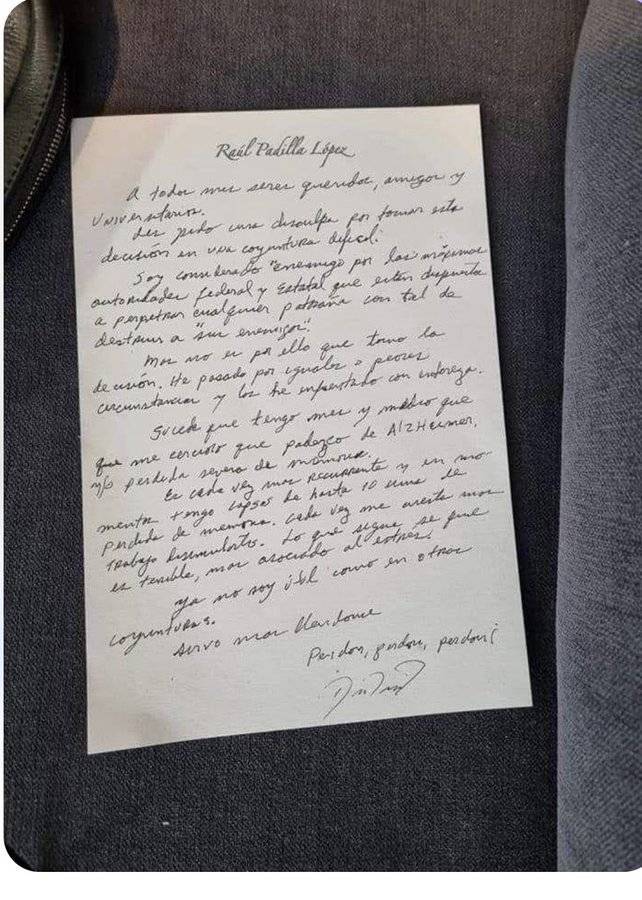 Raúl Padilla López
A todos mis seres queridos, amigos y
Universitarios.
Les pido una disculpa por tomar esta
decisión en una coyuntura difícil.
Soy considerado "enemigo por las máximas
autoridades federal y Estatal que están dispuestas
a perpetrar cualquier patraña con tal de
destruir a "sus enemigos".
Mas no es por ello que tomo la
decisión. He pasado por iguales o peores
circunstancias y los he enfrentado con entereza.
Sucede que tengo mes y medio que
que me cerciolo que padezco de AlzHeimer,
y/o perdida severa de memoria.
Es cada vez mas recurrente y en mo-
mentos tengo lapsos de hasta 10 mins de
perdida de memoria. Cada vez me cuesta mas
trabajo disimularlo. Lo que sigue se que
es terrible, mas asociado al estres.
ya no soy útil como en otras
coyunturas.
sirvo mas
Perdon, perdon, perdon!